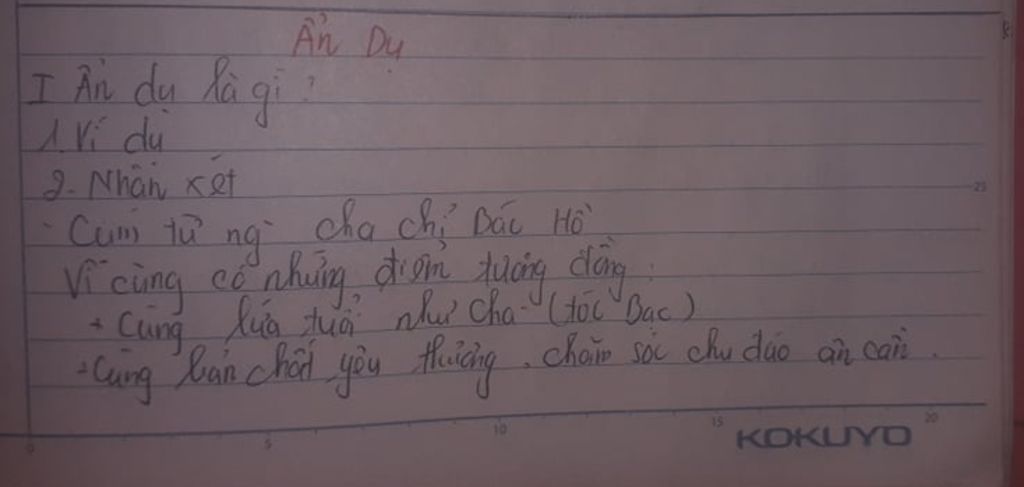 Ẩn Dụ
I Ẩn dụ là gì?
1. Ví dụ
2. Nhận xét
- Cụm từ ng cha chỉ Bác Hồ
Vì cùng có những điểm tương đồng:
+ Cùng lứa tuổi như cha (tóc Bạc)
+ Cùng bản chất yêu thương, chăm sóc chu đáo ân cần.
0 5 10 15 20
25
KOKUYO